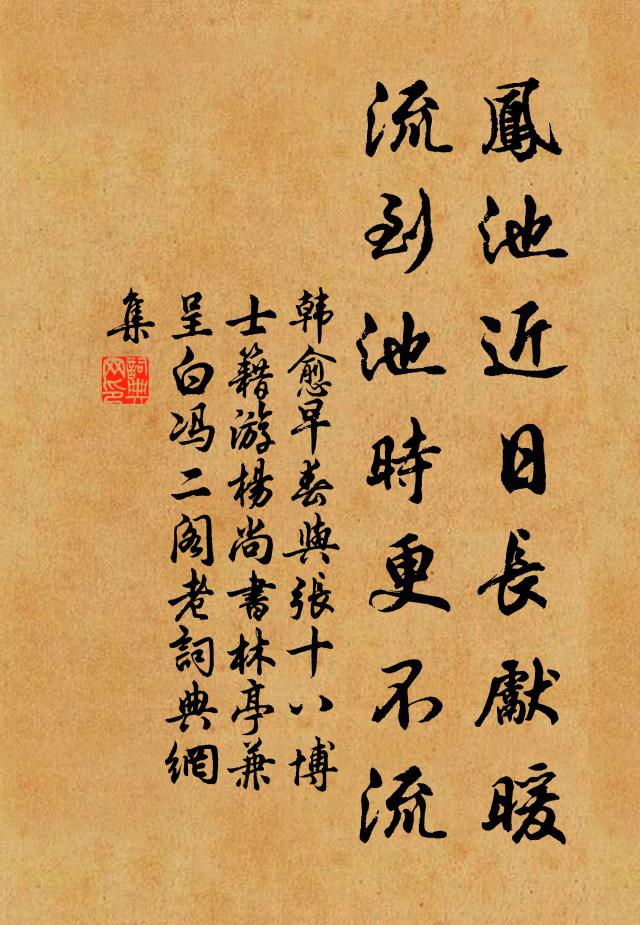 鳳池近日長獻暖
流到池時更不流
韩愈早春與張十八博
士籍游楊尚書林亭兼
呈白冯二阁老詞典網
集
詞典
网印